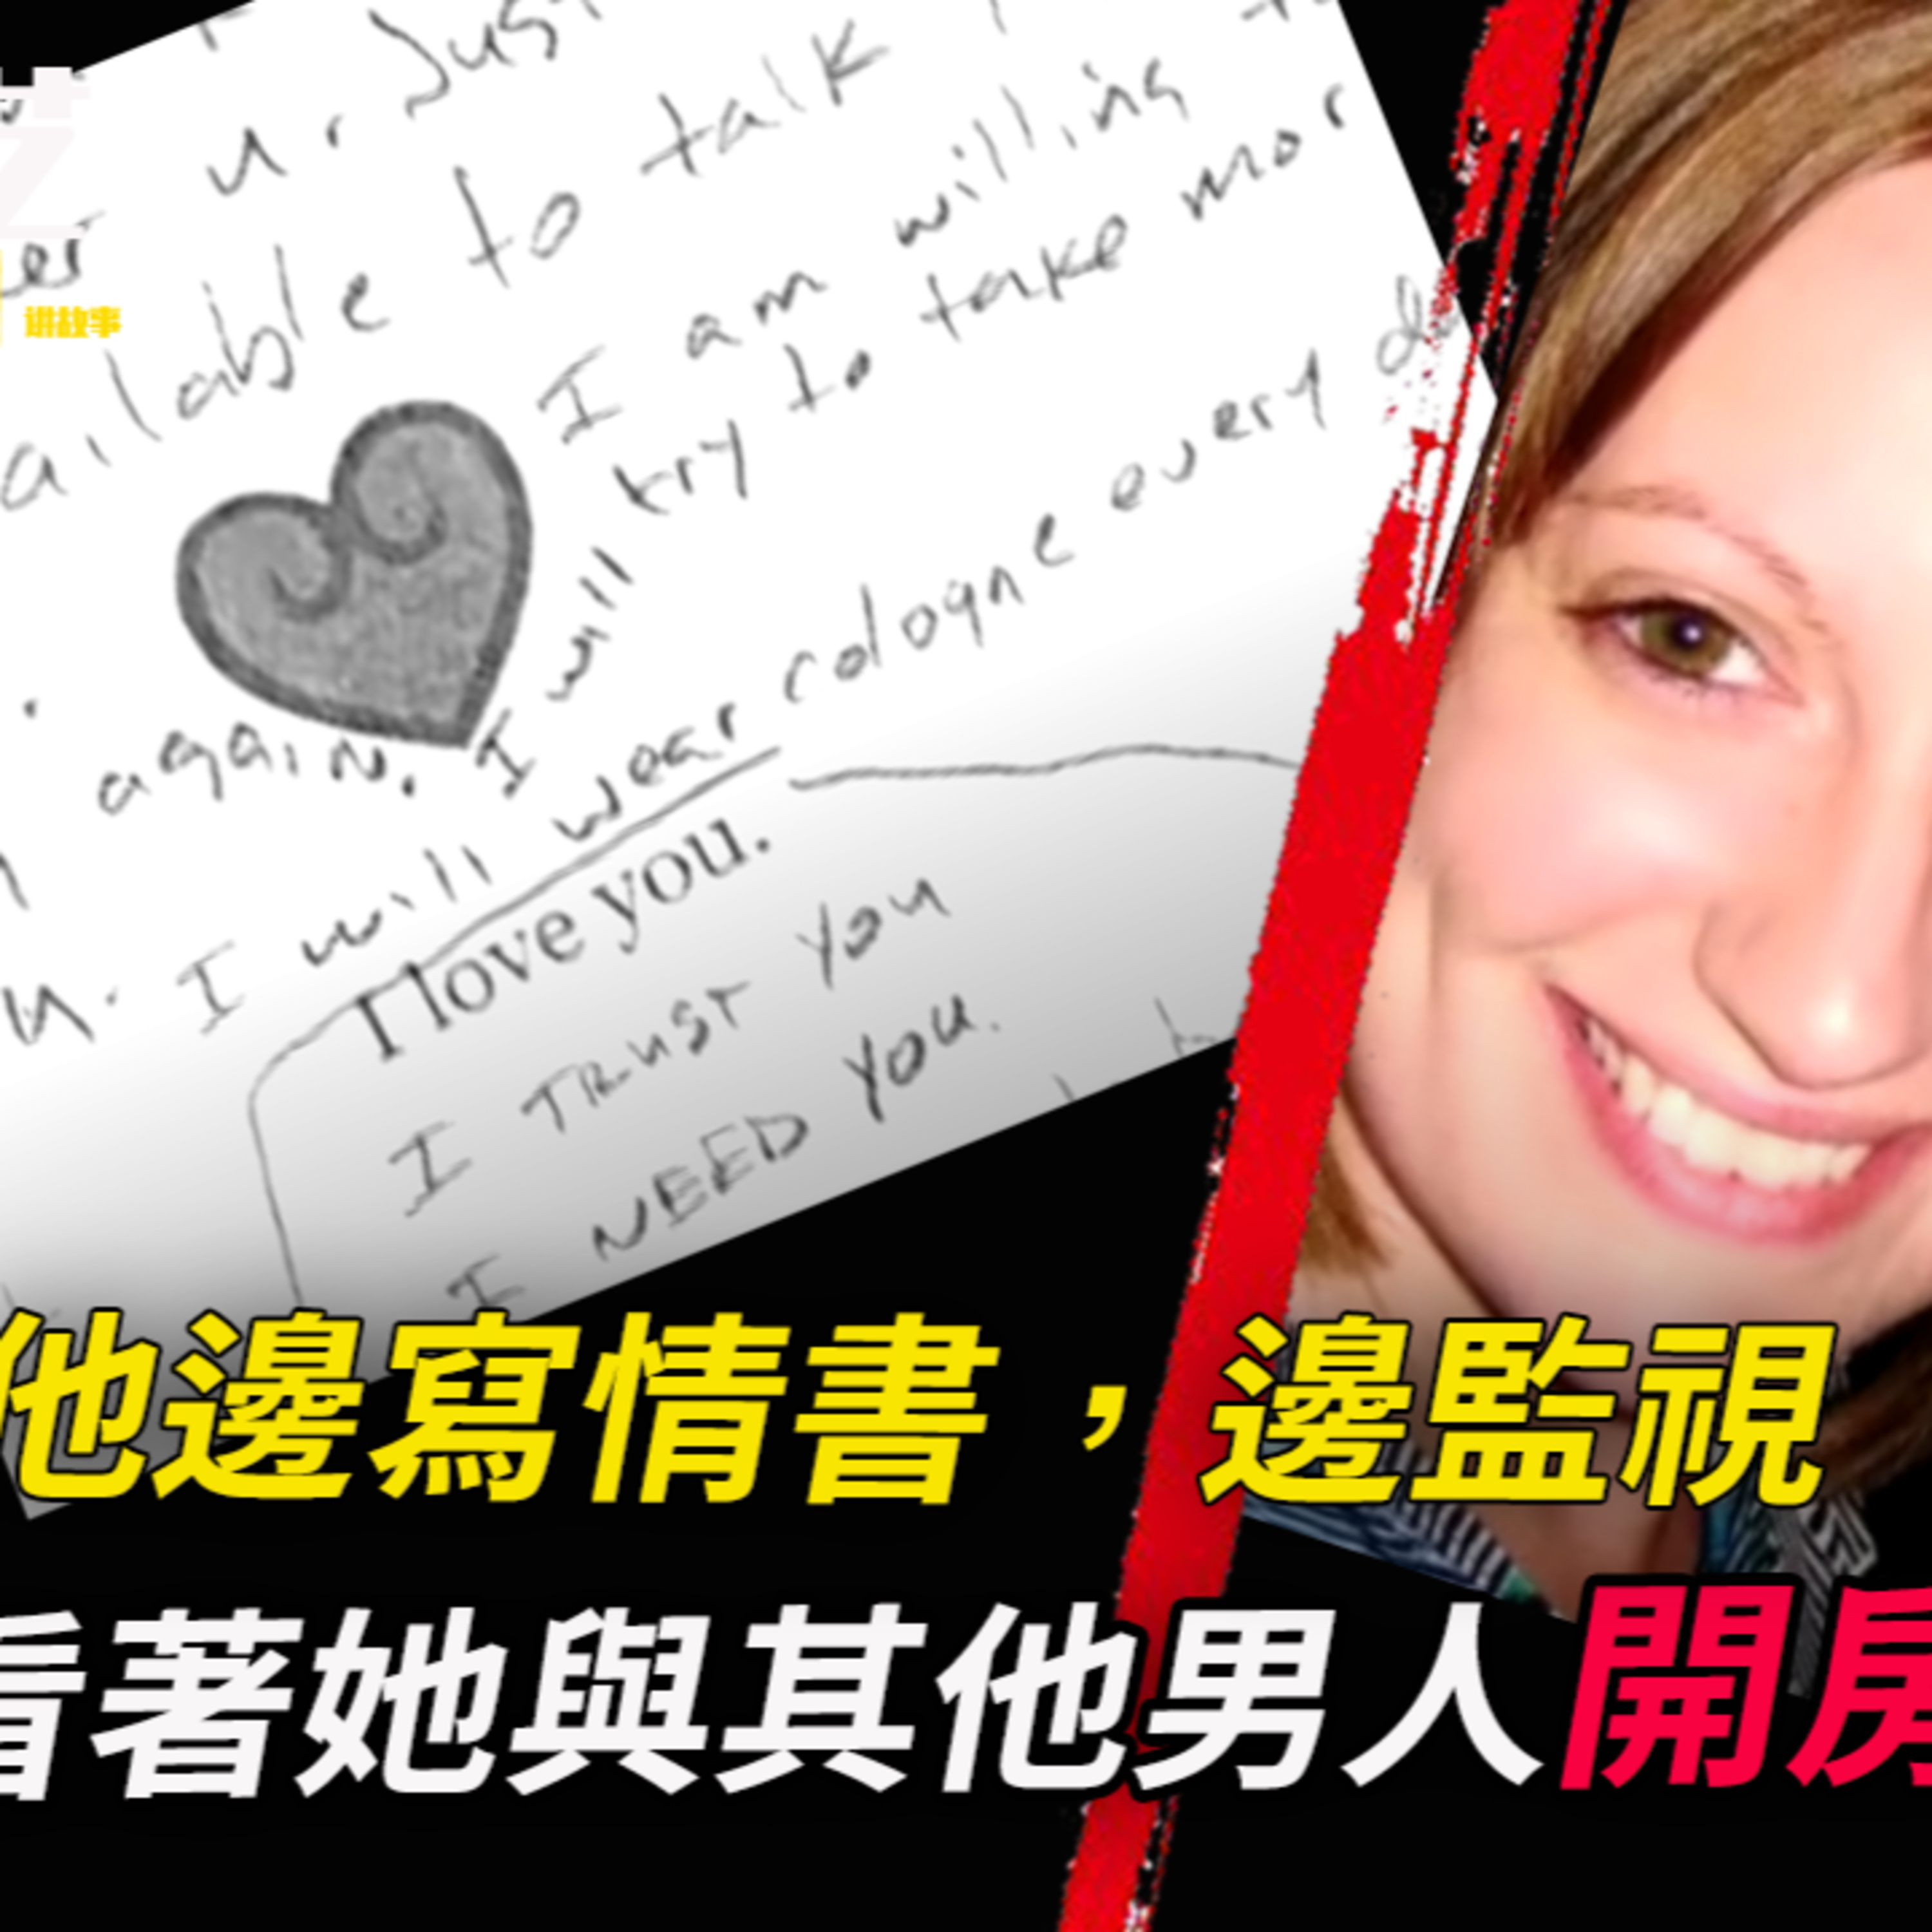 讲故事
er u r Just
ailable to talk
I am willing to
try to take mor
again. I will
I will wear cologne every
I love you.
I TRUST You
I NEED You.
I
他邊寫情書，邊監視
看著她與其他男人開房